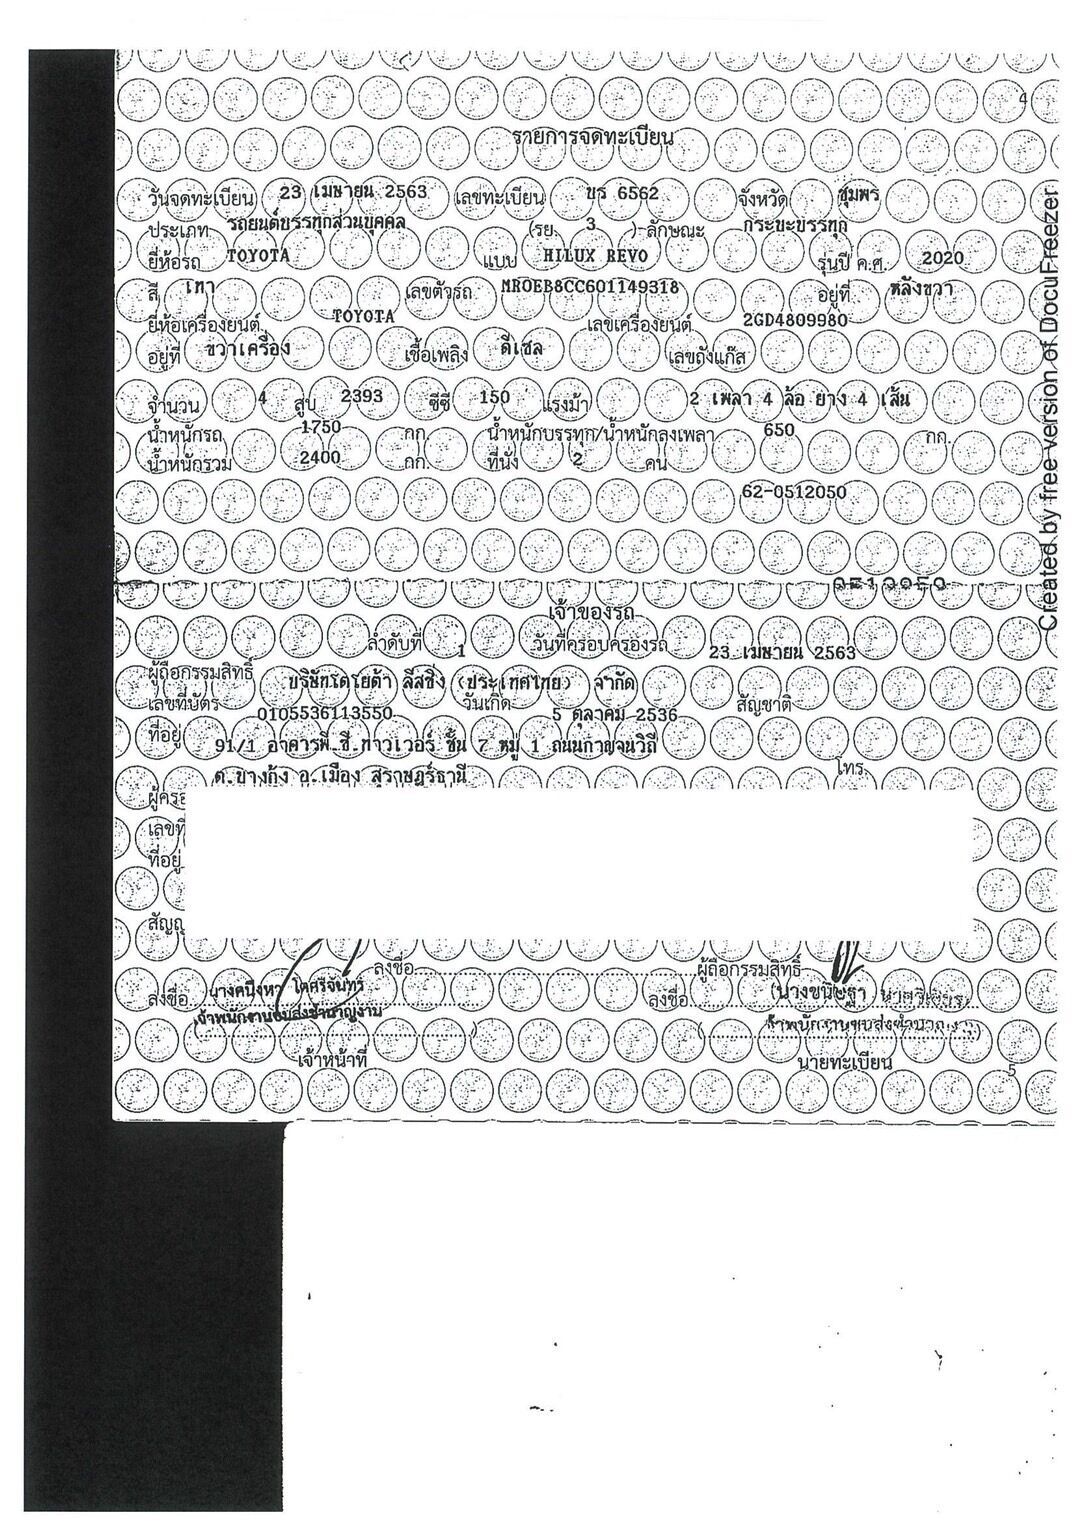 4
รายการจดทะเบียน
วันจดทะเบียน 23 เมษายน 2563 เลขทะเบียน บร 6562 จังหวัด ชุมพร
ประเภท รถยนต์บรรทุกส่วนบุคคล (รย. 3 ) ลักษณะ กระบะบรรทุก
ยี่ห้อรถ TOYOTA แบบ HILUX REVO รุ่นปี ค.ศ. 2020
สี เทา เลขตัวรถ MR0EB8CC601149318 อยู่ที่ หลังขวา
ยี่ห้อเครื่องยนต์ TOYOTA เลขเครื่องยนต์ 2GD4809980
อยู่ที่ ขวาเครื่อง เชื้อเพลิง ดีเซล เลขถังแก๊ส
จำนวน 4 สูบ 2393 ซีซี 150 แรงม้า 2 เพลา 4 ล้อ ยาง 4 เส้น
น้ำหนักรถ 1750 กก. น้ำหนักบรรทุก/น้ำหนักลงเพลา 650 กก.
น้ำหนักรวม 2400 กก. ที่นั่ง 2 คน
62-0512050
เจ้าของรถ
ลำดับที่ 1 วันที่ครอบครองรถ 23 เมษายน 2563
ผู้ถือกรรมสิทธิ์ บริษัทโตโยต้า ลีสซิ่ง (ประเทศไทย) จำกัด
เลขที่บัตร 0105536113550 วันเกิด 5 ตุลาคม 2536 สัญชาติ
ที่อยู่ 91/1 อาคารพี.ซี.ทาวเวอร์ ชั้น 7 หมู่ 1 ถนนกาญจนวิถี
ต.บางกุ้ง อ.เมือง สุราษฎร์ธานี โทร.
เลขที่
ที่อยู่
ลงชื่อ ผู้ถือกรรมสิทธิ์
ลงชื่อ นางคนึงหา โตศรีจันทร์ ลงชื่อ (นางขนิษฐา
เจ้าพนักงานขนส่งชำนาญงาน
เจ้าหน้าที่ นายทะเบียน
5
Created by free version of DocuFreezer